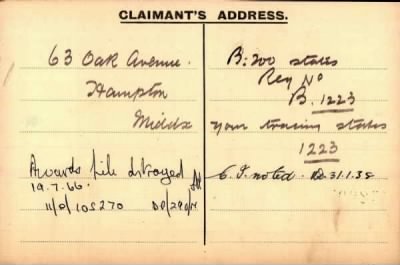 CLAIMANT'S ADDRESS.
63 Oak Avenue.
Hampton
Middx
Awards file destroyed
19.7.66.
11/0/105270
B: 200 states
Reg No
B. 1223
your tracing states
1223
C.I. noted. 31.1.38